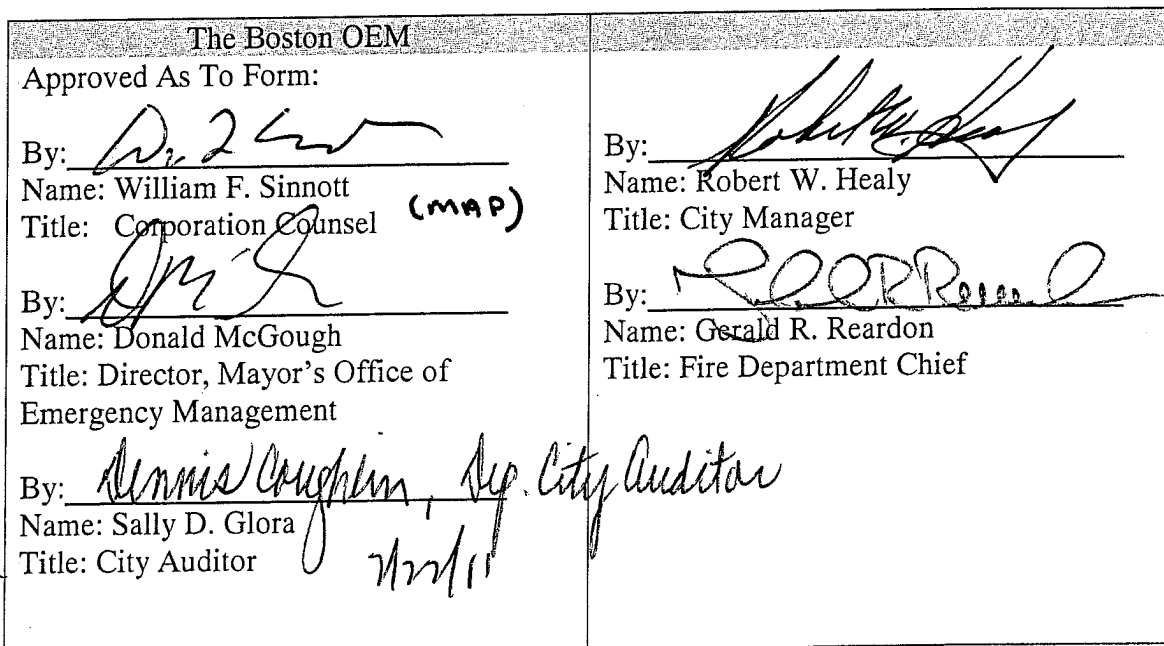 The Boston OEM
Approved As To Form:
By:
Name: William F. Sinnott
Title: Corporation Counsel (MAP)
By:
Name: Donald McGough
Title: Director, Mayor's Office of
Emergency Management
By: Dennis Coughlin, Dep. City Auditor
Name: Sally D. Glora
Title: City Auditor 7/22/11
By: Robert W. Healy
Name: Robert W. Healy
Title: City Manager
By: Gerald R Reardon
Name: Gerald R. Reardon
Title: Fire Department Chief